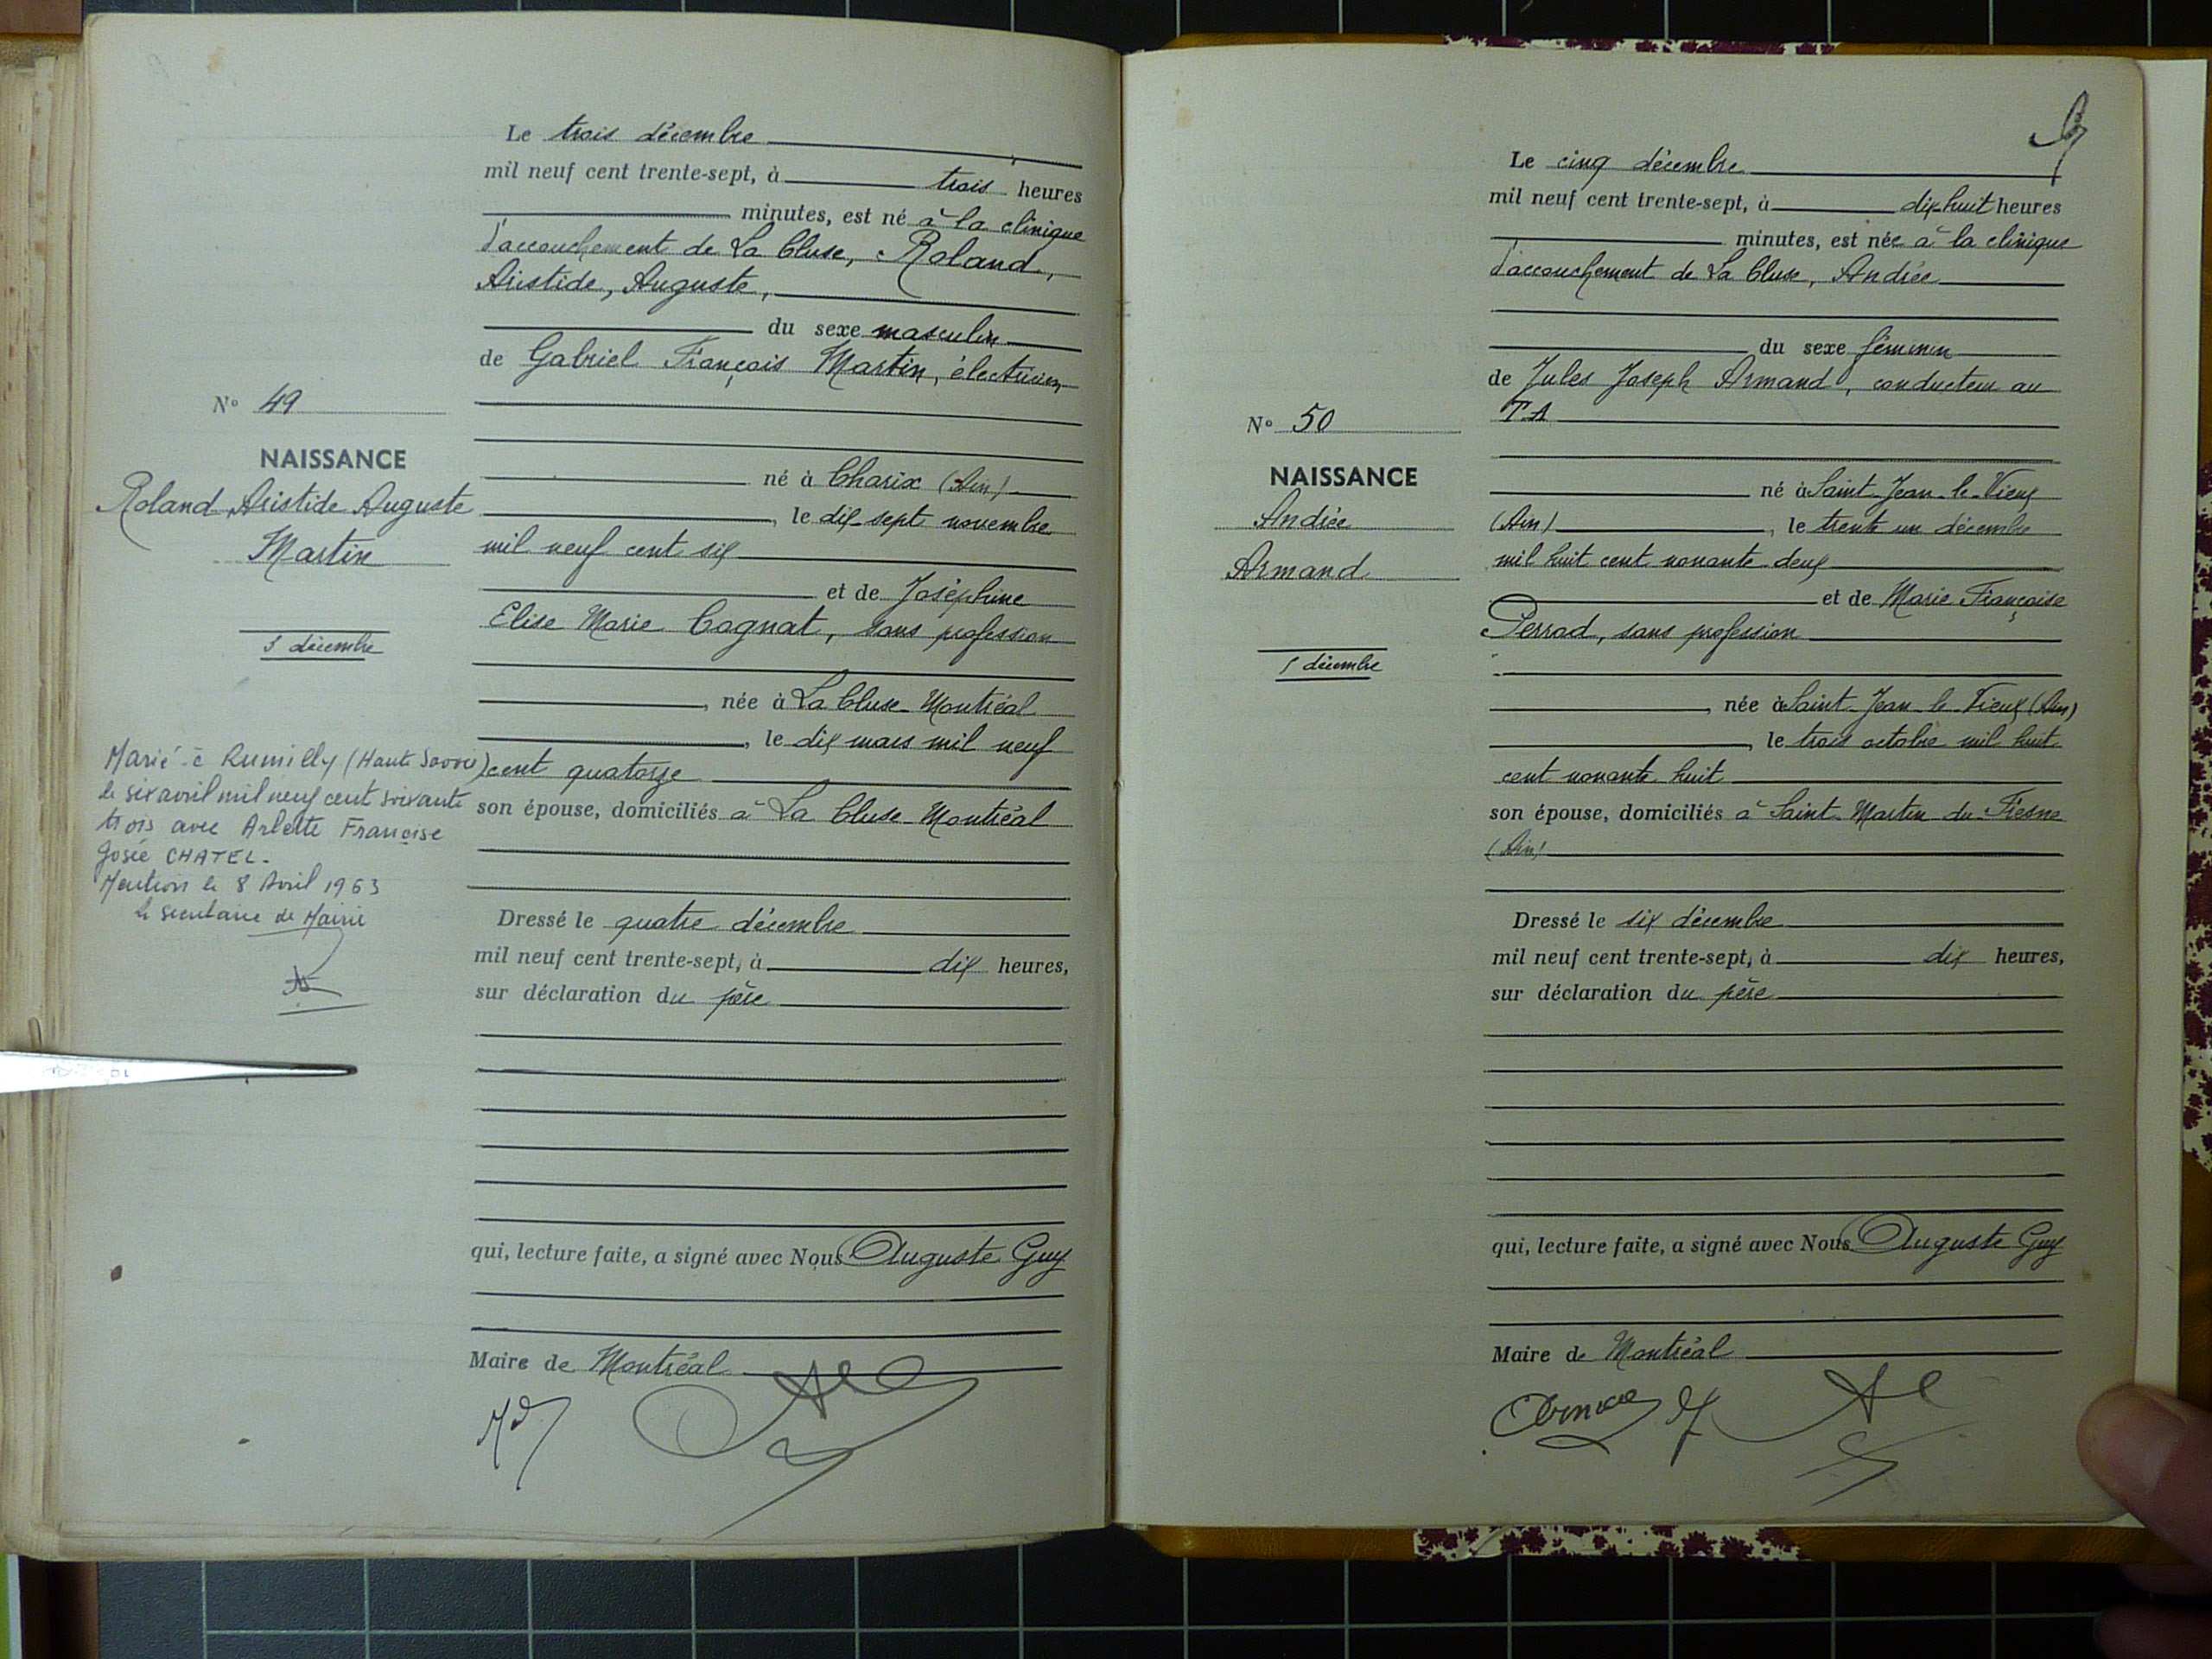 Le trois décembre
mil neuf cent trente-sept, à trois heures
minutes, est né à la clinique
d'accouchement de La Cluse, Roland,
Aristide, Auguste,
du sexe masculin
de Gabriel François Martin, électricien
né à Charix (Ain)
, le dix-sept novembre
mil neuf cent six
et de Joséphine
Elise Marie Cagnat, sans profession
, née à La Cluse-Montréal
, le dix mars mil neuf
cent quatorze
son épouse, domiciliés à La Cluse-Montréal
Dressé le quatre décembre
mil neuf cent trente-sept, à dix heures,
sur déclaration du père
qui, lecture faite, a signé avec Nous Auguste Guy
Maire de Montréal
N° 49
NAISSANCE
Roland, Aristide Auguste
Martin
décembre
Marié à Rumilly (Haute Savoie)
le six avril mil neuf cent soixante
trois avec Arlette Françoise
Josée CHATEL.
Mention le 8 Avril 1963
le secrétaire de Mairie
Le cinq décembre
mil neuf cent trente-sept, à dix-huit heures
minutes, est née à la clinique
d'accouchement de La Cluse, Andrée
du sexe féminin
de Jules Joseph Armand, conducteur au
T.A
né à Saint-Jean-le-Vieux
(Ain), le trente un décembre
mil huit cent nonante-deux
et de Marie Françoise
Perrad, sans profession
, née à Saint-Jean-le-Vieux (Ain)
, le trois octobre mil huit
cent nonante huit
son épouse, domiciliés à Saint-Martin du Fresne
(Ain)
Dressé le six décembre
mil neuf cent trente-sept, à dix heures,
sur déclaration du père
qui, lecture faite, a signé avec Nous Auguste Guy
Maire de Montréal
N° 50
NAISSANCE
Andrée
Armand
5 décembre